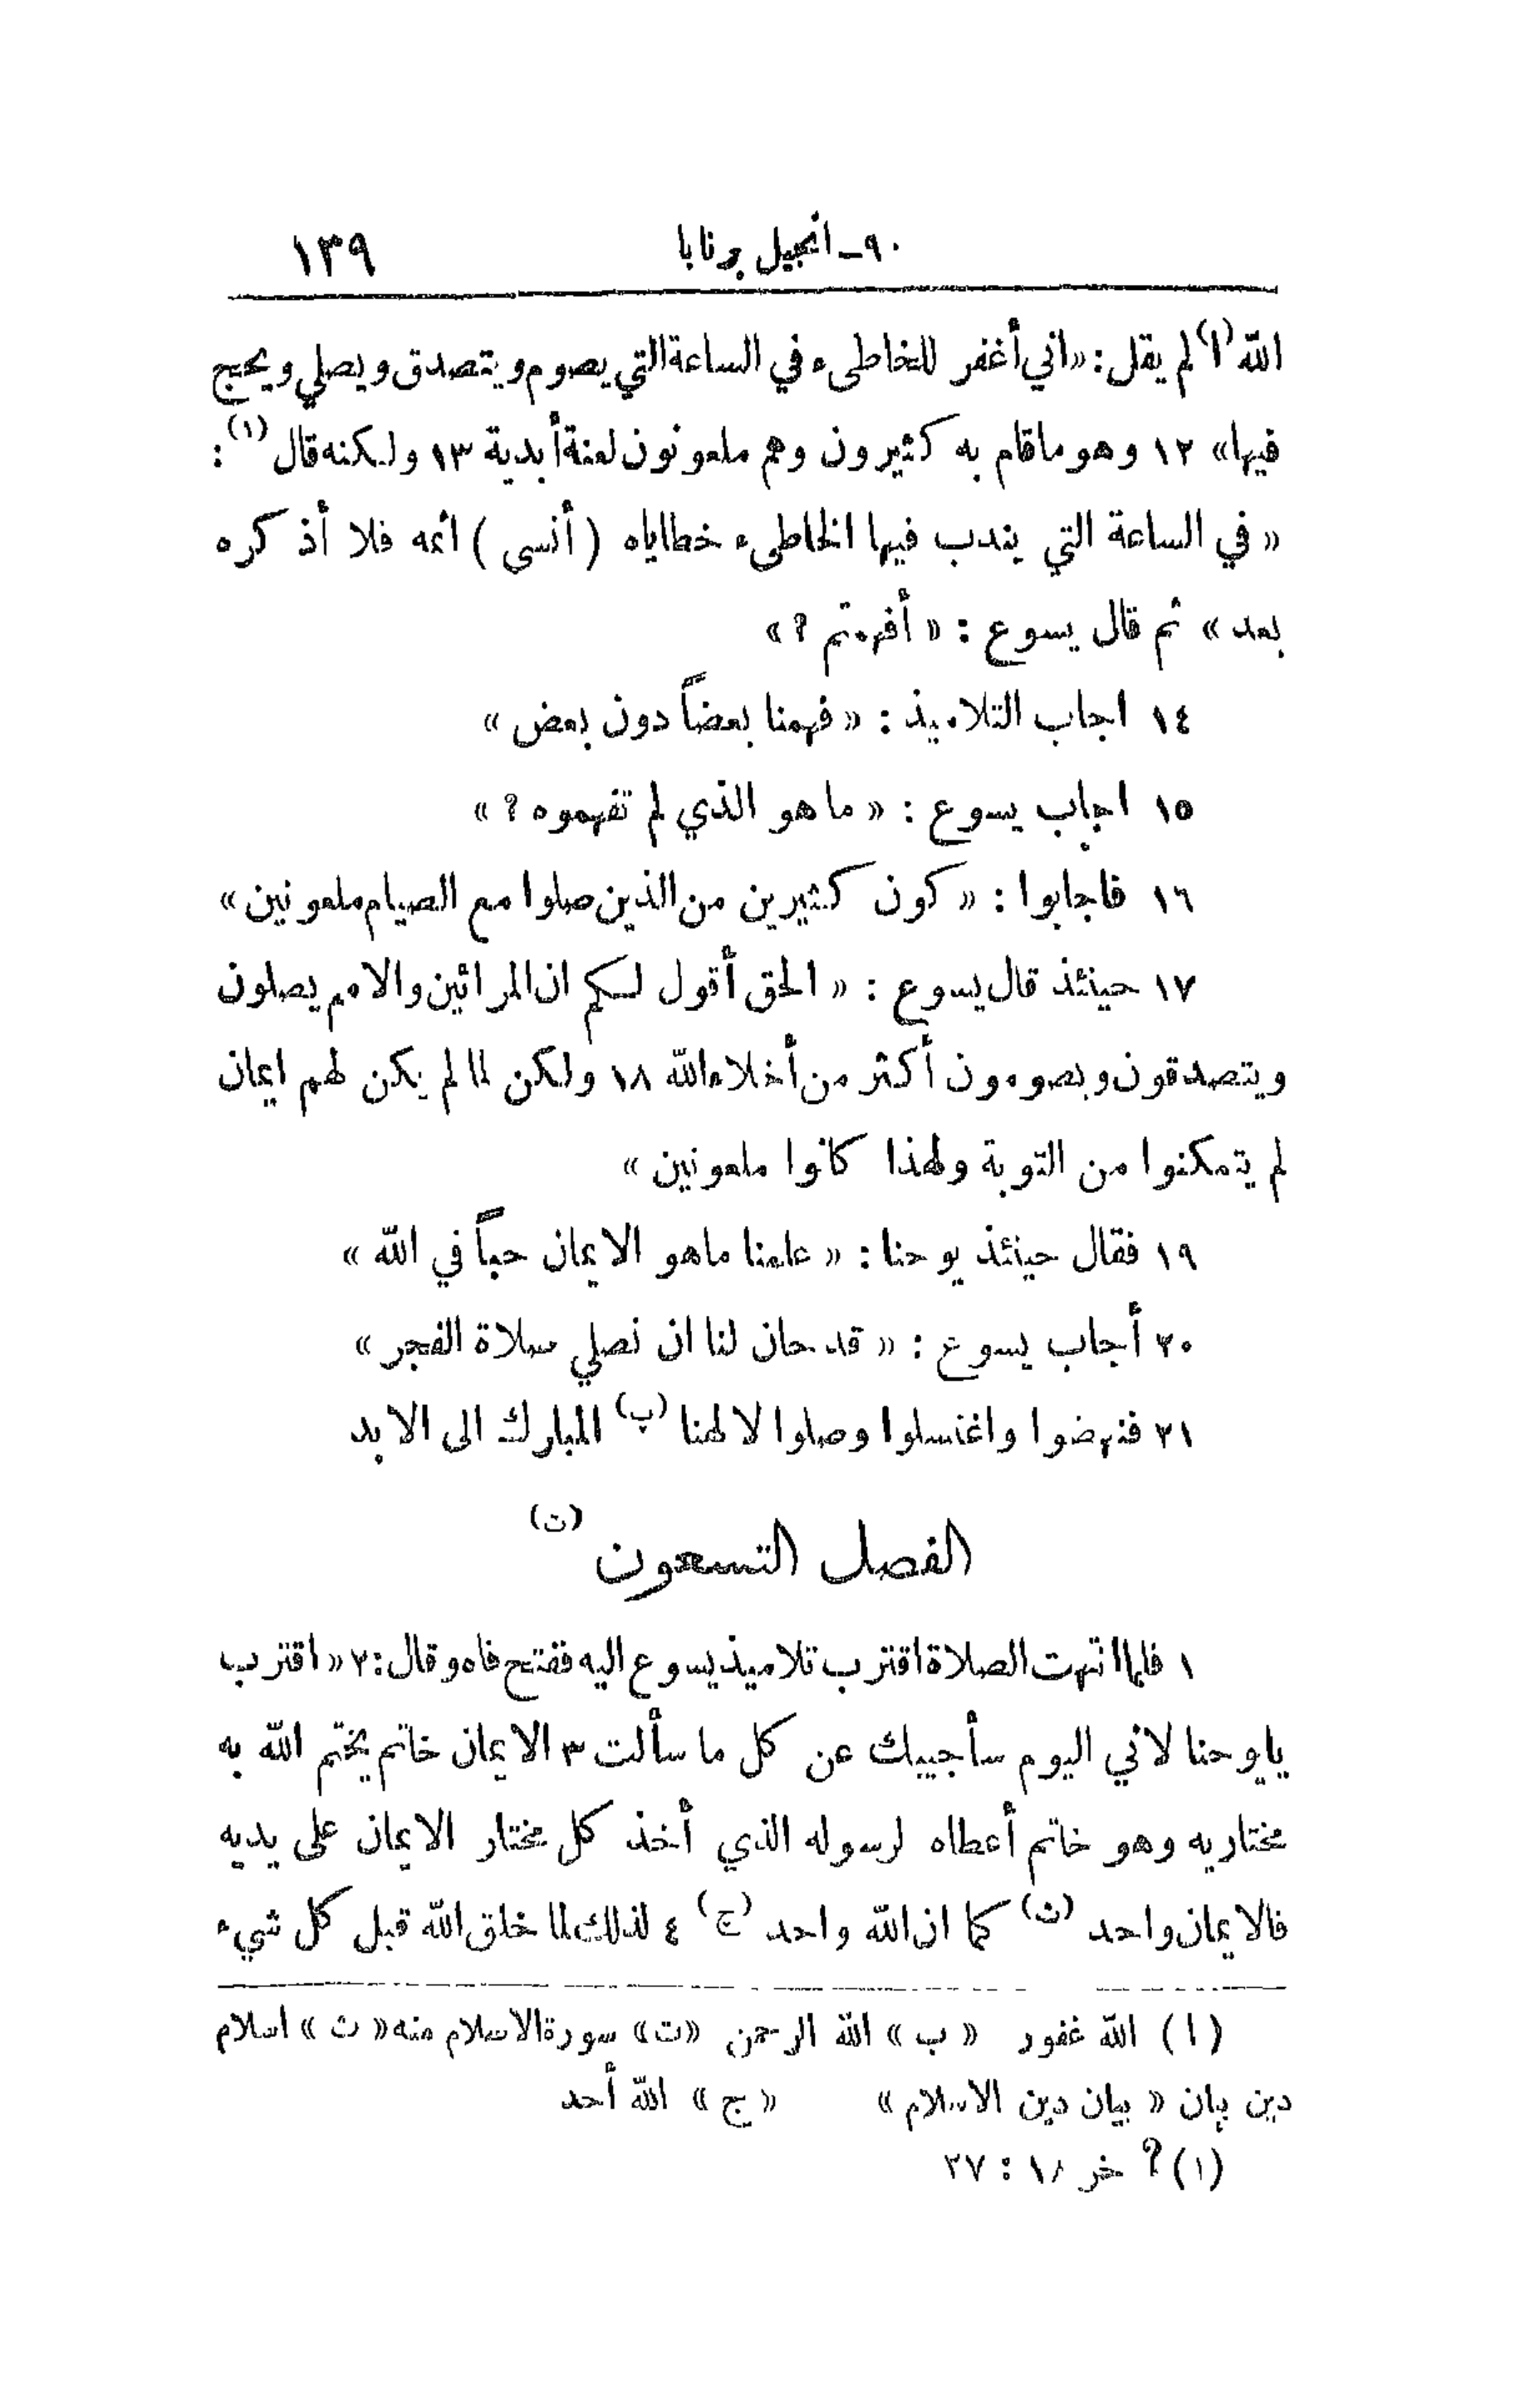 ٩٠ـ انجيل برنابا ١٣٩
الله (ا) لم يقل : « اني أغفر للخاطىء في الساعة التي يصوم ويتصدق ويصلي ويحج
فيها » ١٢ وهو ما قام به كثيرون وهم ملعونون لعنة أبدية ١٣ ولكنه قال (١) :
« في الساعة التي يندب فيها الخاطىء خطاياه ( أنسى ) اثمه فلا أذكره
بعد » ثم قال يسوع : « أفهمتم ؟ »
١٤ اجاب التلاميذ : « فهمنا بعضاً دون بعض »
١٥ اجاب يسوع : « ما هو الذي لم تفهموه ؟ »
١٦ فاجابوا : « كون كثيرين من الذين صلوا مع الصيام ملعونين »
١٧ حينئذ قال يسوع : « الحق أقول لكم ان المرائين والامم يصلون
ويتصدقون ويصومون أكثر من أخلاء الله ١٨ ولكن لما لم يكن لهم ايمان
لم يتمكنوا من التوبة ولهذا كانوا ملعونين »
١٩ فقال حينئذ يوحنا : « علمنا ماهو الايمان حباً في الله »
٢٠ أجاب يسوع : « قد حان لنا ان نصلي صلاة الفجر »
٢١ فنهضوا واغتسلوا وصلوا لالهنا (ب) المبارك الى الابد
الفصل التسعون (ت)
١ فلما انتهت الصلاة اقترب تلاميذ يسوع اليه ففتح فاه وقال : ٢ « اقترب
يايوحنا لاني اليوم سأجيبك عن كل ما سألت ٣ الايمان خاتم يختم الله به
مختاريه وهو خاتم أعطاه لرسوله الذي أخذ كل مختار الايمان على يديه
فالايمان واحد (ث) كما ان الله واحد (ج) ٤ لذلك لما خلق الله قبل كل شيء
(ا) الله غفور « ب » الله الرحمن « ت » سورة الاسلام منه « ث » اسلام
دين بان « بيان دين الاسلام » « ج » الله أحد
(١) ؟ خر ١٨ : ٢٧